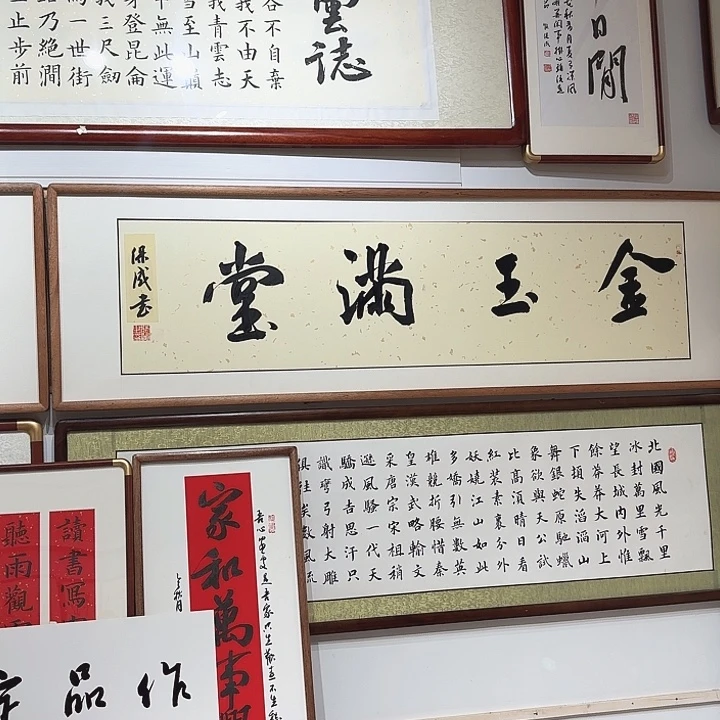 雲誌
谷不自棄
我不由天
我青雲志
雪至山巔
中無此運
身登昆侖
我三尺劍
乃絕澗
止步前
日閒
金玉滿堂
保成書
北國風光千里
冰封萬里雪飄
望長城內外惟
餘莽莽大河上
下頓失滔滔山
舞銀蛇原馳蠟
象欲與天公試
比高須晴日看
紅裝素裹分外
妖嬈江山如此
多嬌引無數英
雄競折腰惜秦
皇漢武略輸文
采唐宗宋祖稍
遜風騷一代天
驕成吉思汗只
識彎弓射大雕
俱往矣數風流
讀書寫
聽雨觀
家和萬事興
作品